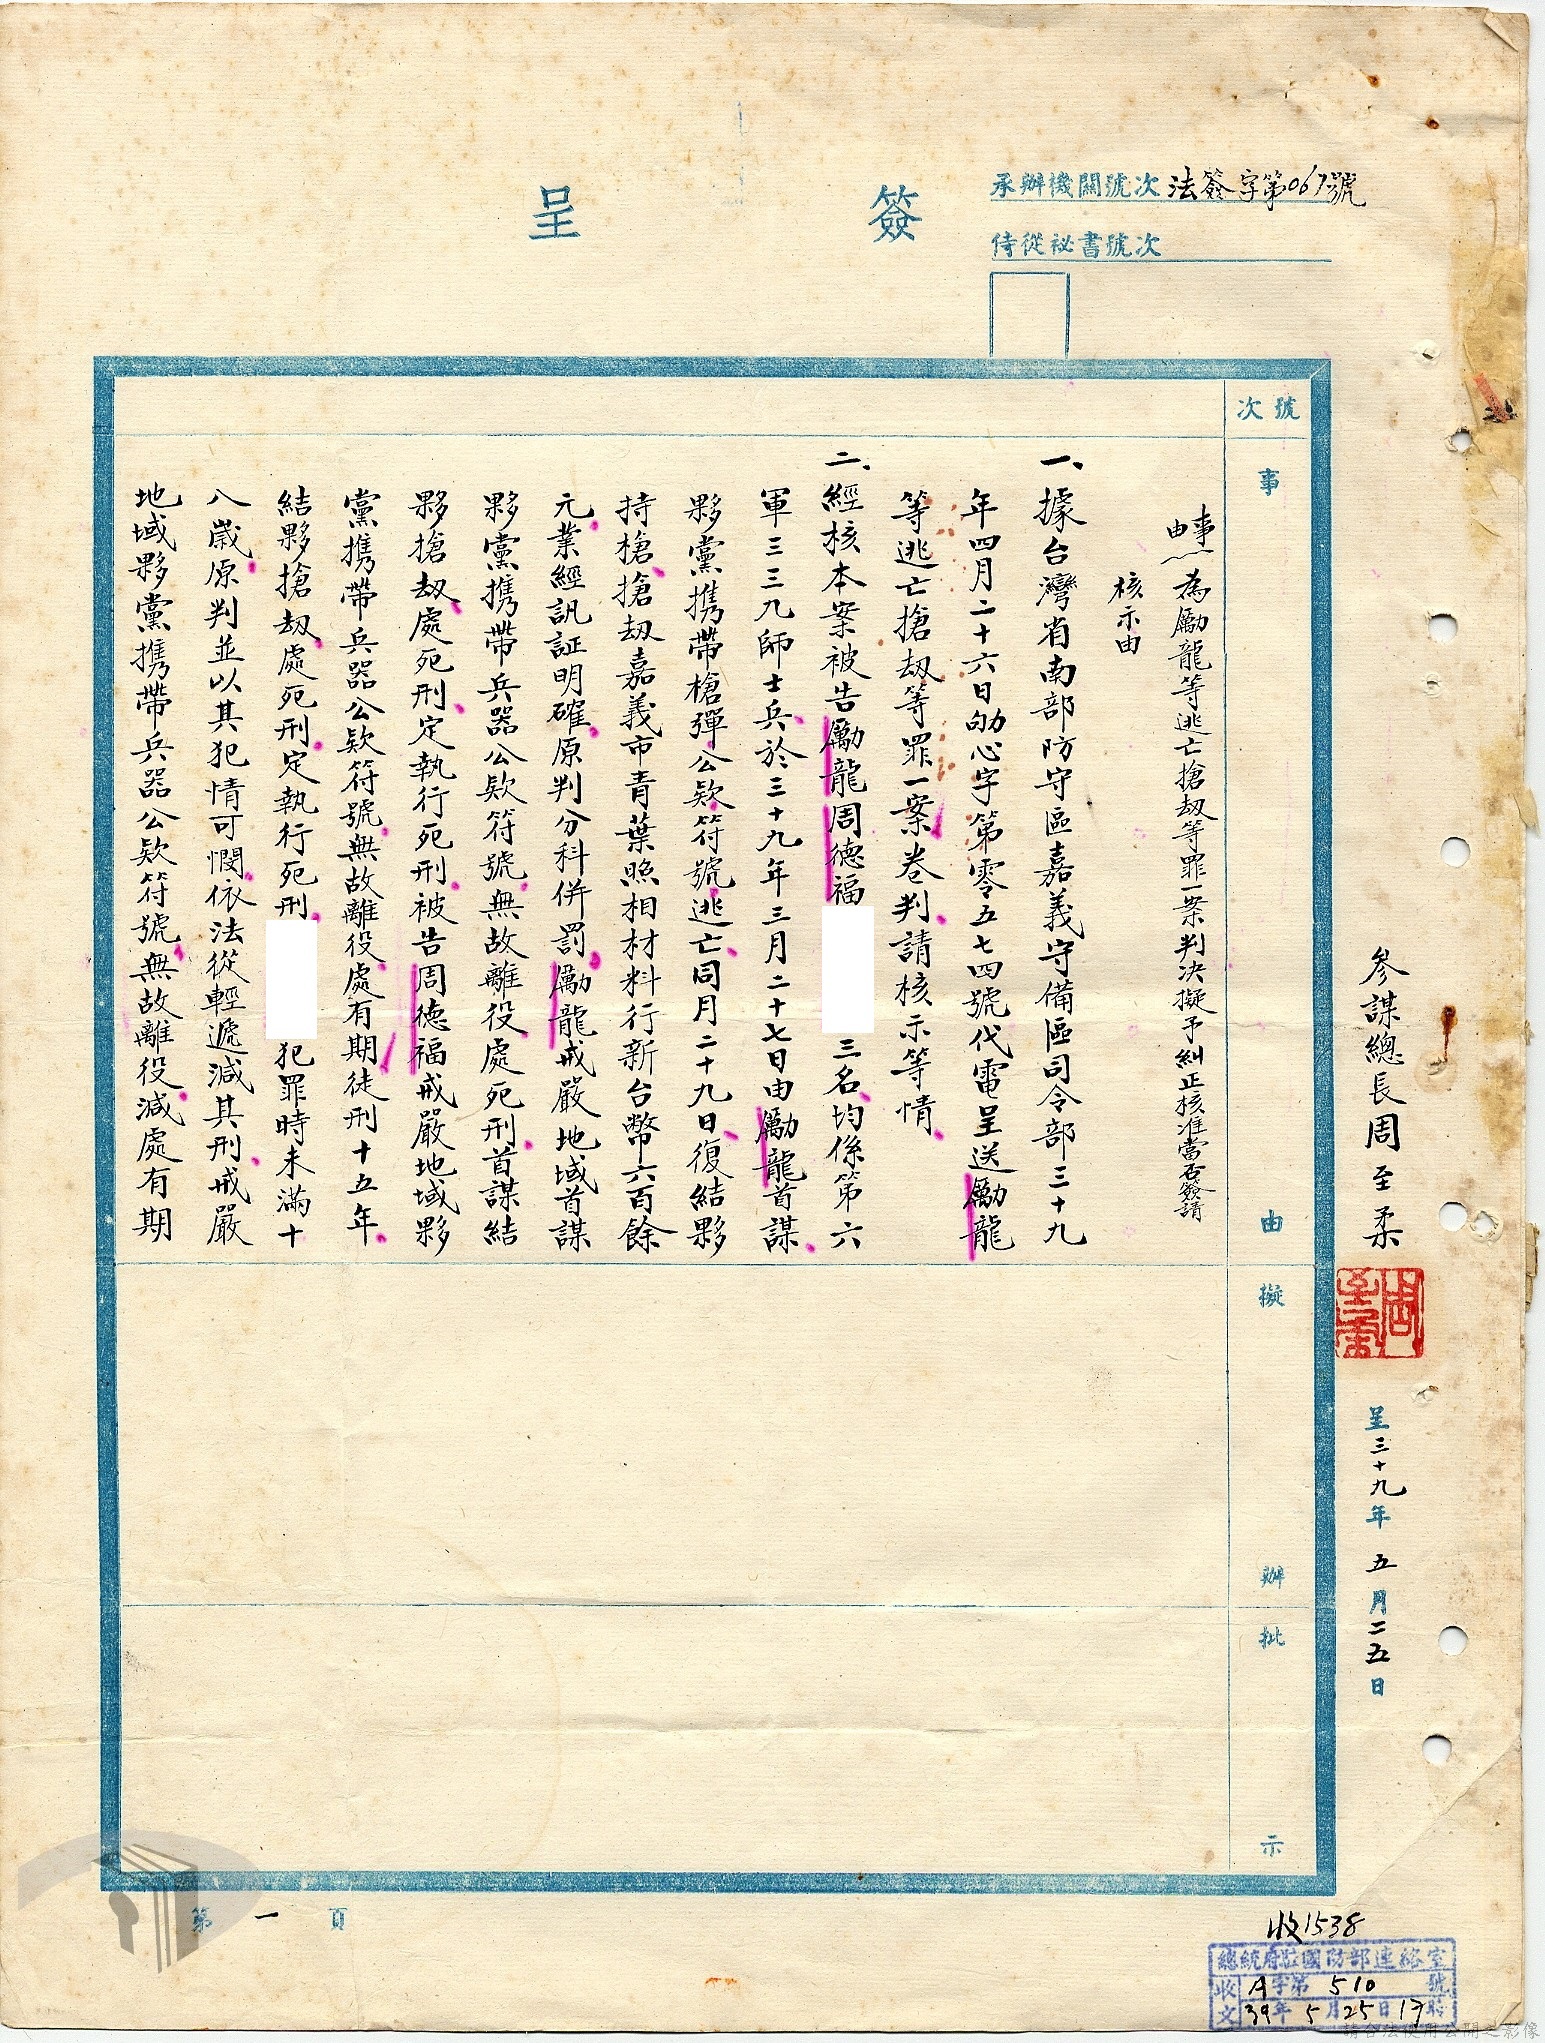 簽呈
承辦機關號次 法簽字第067號
侍從祕書號次
參謀總長周至柔
周至柔
呈三十九年五月二五日
號次
事由
擬辦
批示
事由 為勵龍等逃亡搶刼等罪一案判决擬予糾正核准當否簽請
核示由
一、據台灣省南部防守區嘉義守備區司令部三十九
年四月二十六日劬心字第零五七四號代電呈送勵龍
等逃亡搶刼等罪一案卷判請核示等情
二、經核本案被告勵龍周德福 三名均係第六
軍三三九師士兵於三十九年三月二十七日由勵龍首謀
夥黨携帶槍彈公款符號逃亡同月二十九日復結夥
持槍搶刼嘉義市青葉照相材料行新台幣六百餘
元業經訊証明確原判分科併罰勵龍戒嚴地域首謀
夥黨携帶兵器公款符號無故離役處死刑首謀結
夥搶刼處死刑定執行死刑被告周德福戒嚴地域夥
黨携帶兵器公款符號無故離役處有期徒刑十五年
結夥搶刼處死刑定執行死刑 犯罪時未滿十
八歲原判並以其犯情可憫依法從輕遞減其刑戒嚴
地域夥黨携帶兵器公款符號無故離役減處有期
第一頁
收1538
總統府駐國防部連絡室
收文 A字第510號
39年5月25日17時
請合法使用公開之影像